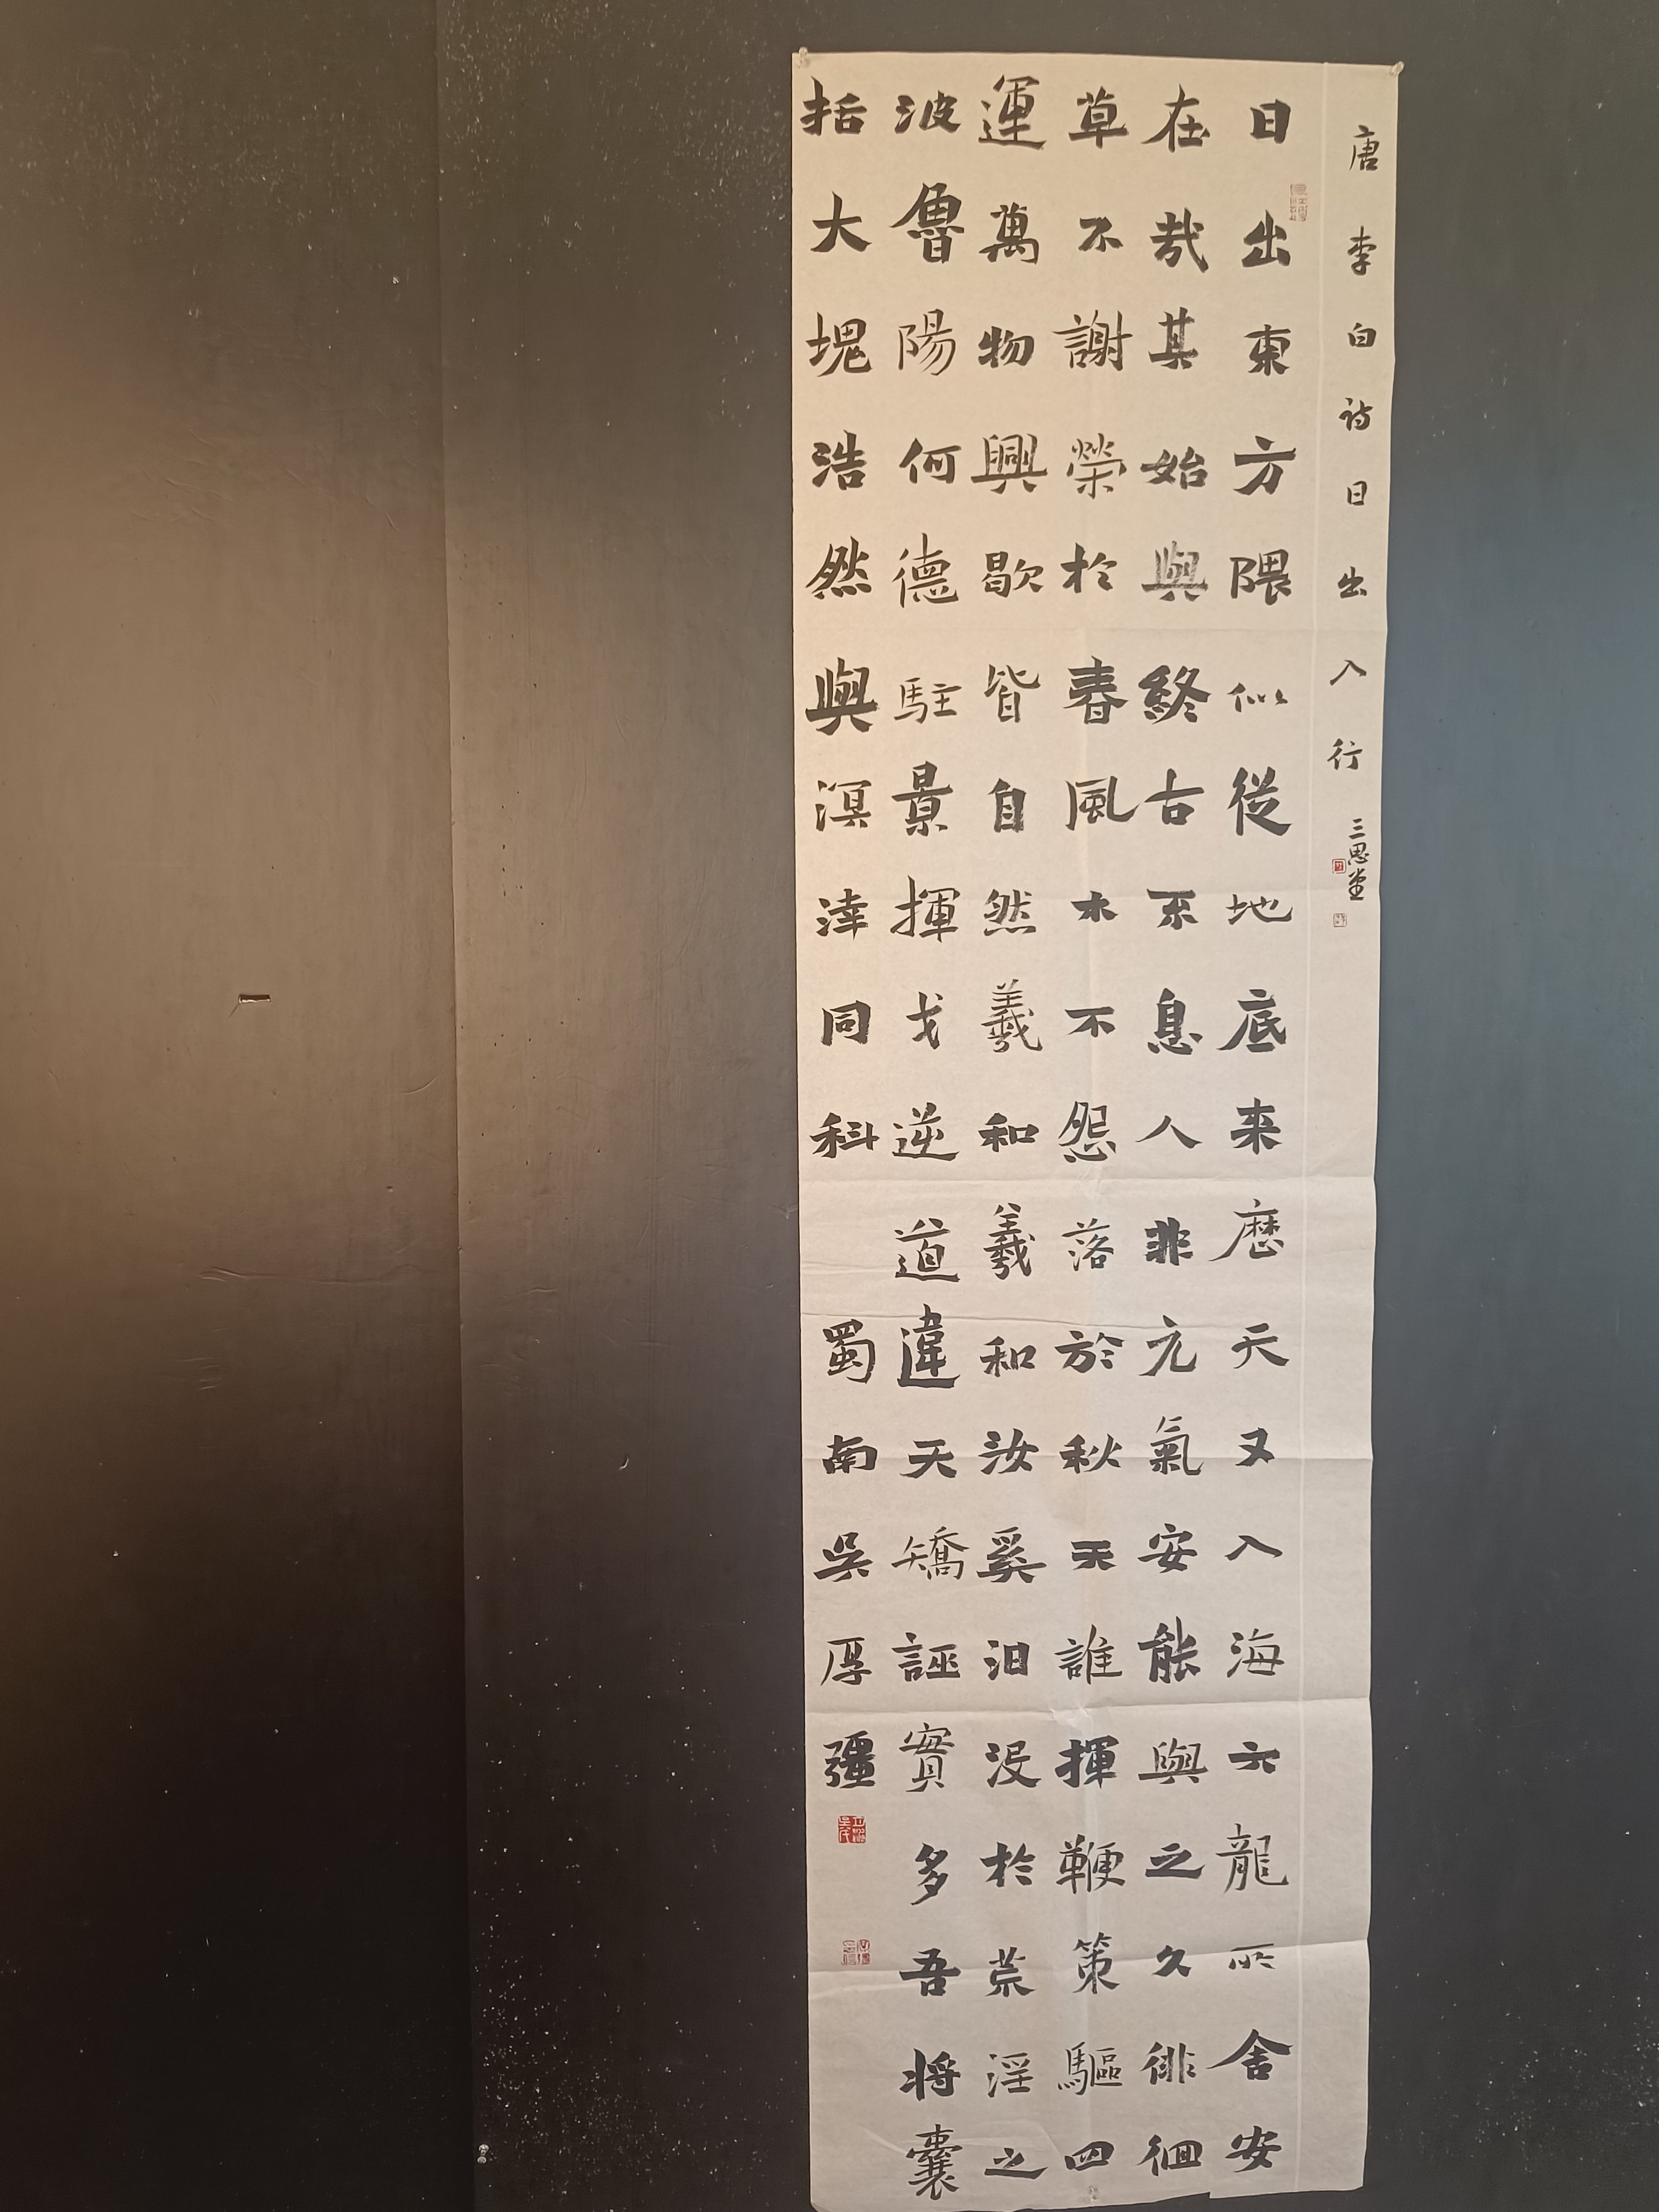 唐李白詩日出入行 三思堂
日出東方隈似從地底来歷天又入海六龍所舍安
在哉其始與終古不息人非元氣安能與之久徘徊
草不謝榮於春風木不怨落於秋天誰揮鞭策驅四
運萬物興歇皆自然羲和羲和汝奚汨没於荒淫之
波魯陽何德駐景揮戈逆道違天矯誣實多吾将囊
括大塊浩然與溟涬同科 蜀南吳厚疆